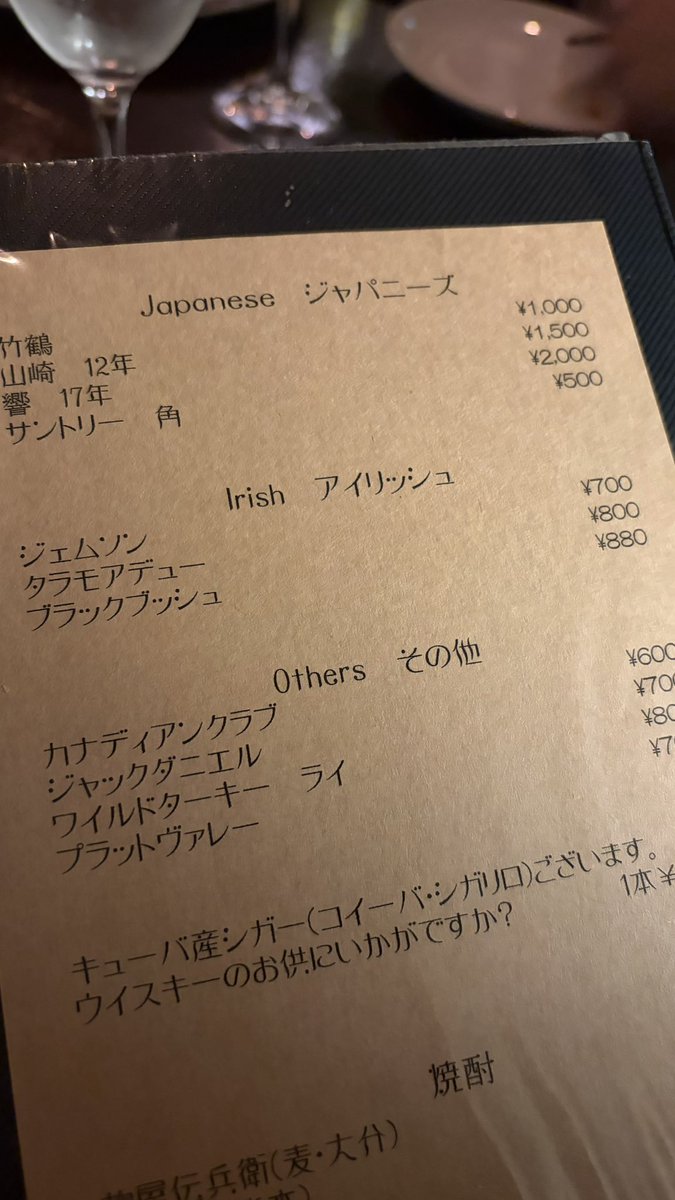 Japanese ジャパニーズ
竹鶴 ¥1,000
山崎 12年 ¥1,500
響 17年 ¥2,000
サントリー 角 ¥500
Irish アイリッシュ
ジェムソン ¥700
タラモアデュー ¥800
ブラックブッシュ ¥880
Others その他
カナディアンクラブ ¥600
ジャックダニエル ¥700
ワイルドターキー ライ
プラットヴァレー
キューバ産シガー(コイーバ・シガリロ)ございます。
1本¥
ウイスキーのお供にいかがですか?
焼酎
伝兵衛(麦・大分)